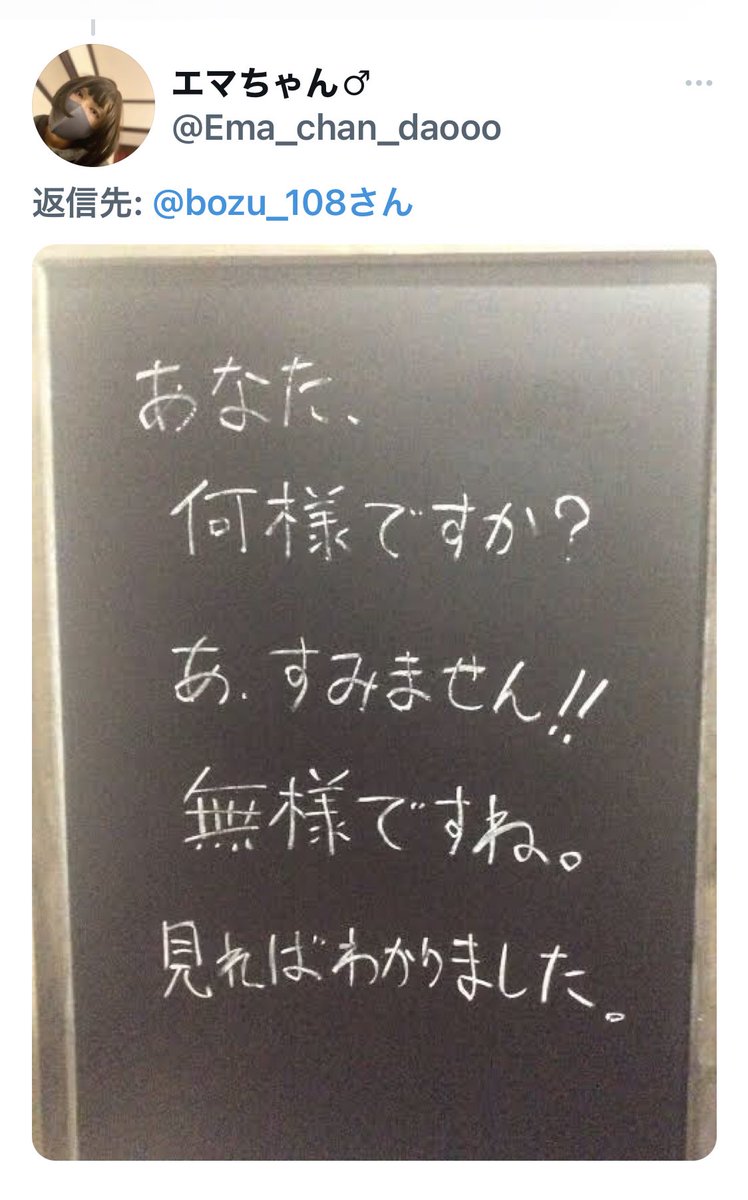 エマちゃん♂
@Ema_chan_daooo
返信先: @bozu_108さん
あなた、
何様ですか?
あ、すみません!!
無様ですね。
見ればわかりました。